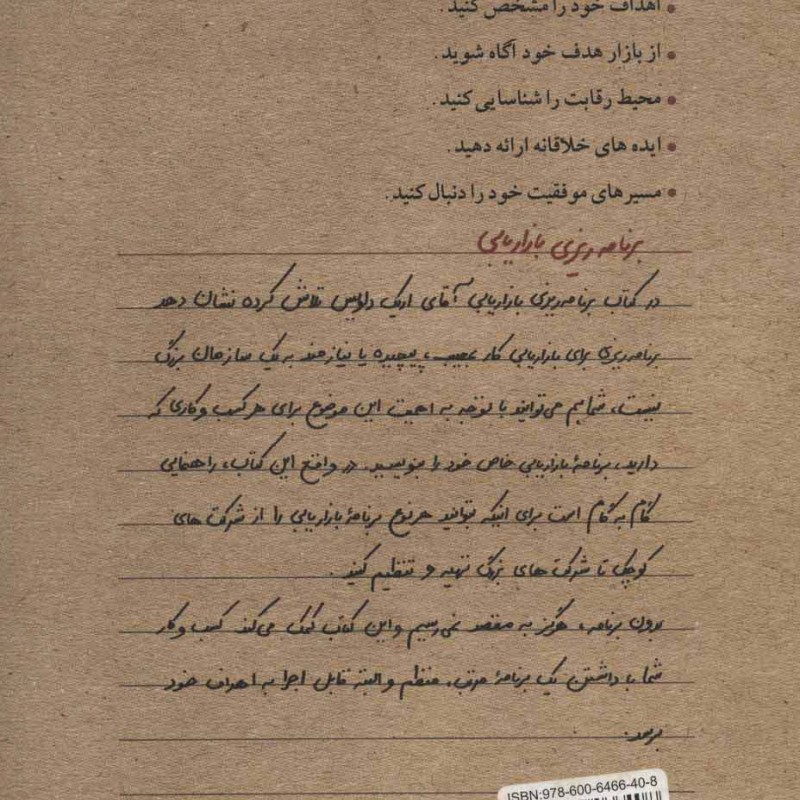 • اهداف خود را مشخص کنید.
• از بازار هدف خود آگاه شوید.
• محیط رقابت را شناسایی کنید.
• ایده های خلاقانه ارائه دهید.
• مسیرهای موفقیت خود را دنبال کنید.
برنامه ریزی بازاریابی
در کتاب برنامه‌ریزی بازاریابی آقای اریک داویس تلاش کرده نشان دهد
برنامه‌ریزی برای بازاریابی کار عجیب، پیچیده یا نیازمند به یک سازمان بزرگ
نیست، شما هم می‌توانید با توجه به اهمیت این موضوع برای هر کسب و کاری که
دارید، برنامهٔ بازاریابی خاص خود را بنویسید. در واقع این کتاب، راهنمایی
گام به گام است برای اینکه بتوانید هر نوع برنامهٔ بازاریابی را از شرکت های
کوچک تا شرکت های بزرگ تهیه و تنظیم کنید.
بدون برنامه، هرگز به مقصد نمی‌رسیم و این کتاب کمک می‌کند کسب و کار
شما با داشتن یک برنامهٔ مرتب، منظم و البته قابل اجرا به اهداف خود
برسد.
ISBN:978-600-6466-40-8